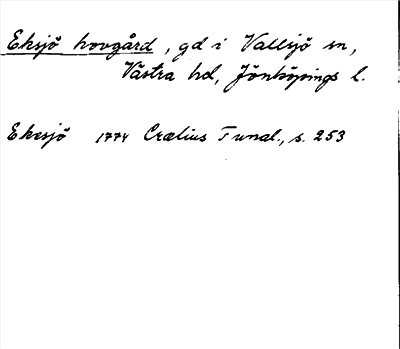 Eksjö hovgård, gd i Vallsjö sn,
Västra hd, Jönköpings l.
Ekesjö 1774 Crælius Tunal., s. 253